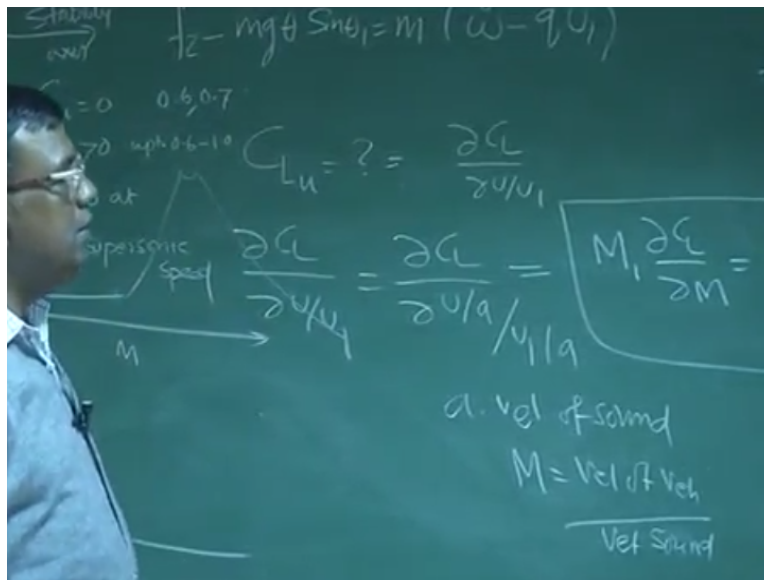 Stability
f_z - mgθ Sinθ₁ = m (ẇ - qU₁)
= 0 0.6, 0.7
>0 upto 0.6-1.0
at
Supersonic
Speed
M
C_{L_u} = ? = ∂C_L / ∂U/U₁
∂C_L / ∂U/U₁ = ∂C_L / ∂U/a / U₁/a = M₁ ∂C_L / ∂M =
a. vel of sound
M = Vel of Veh
Vel Sound